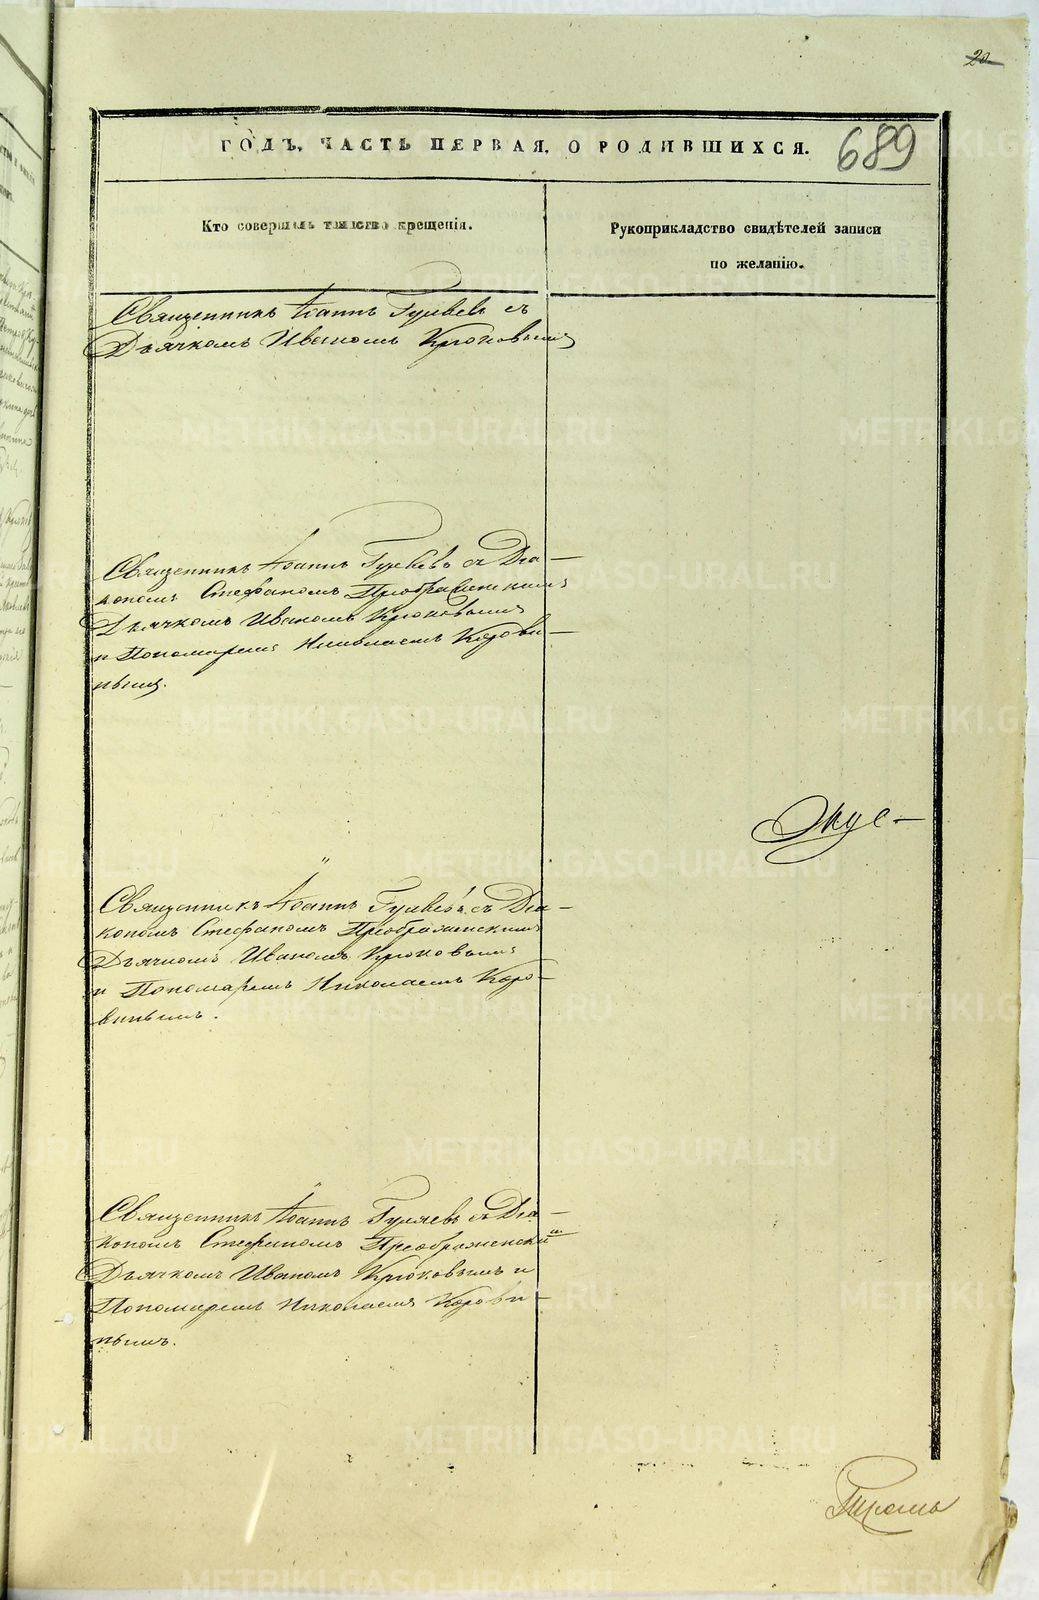 20
ГОДЪ, ЧАСТЬ ПЕРВАЯ, О РОДИВШИХСЯ.
689
Кто совершалъ таинство крещенія.
Рукоприкладство свидѣтелей записи
по желанію.
Священникъ Іоаннъ Гуляевъ съ
Дьячкомъ Иваномъ Крюковымъ
Священникъ Іоаннъ Гуляевъ съ Діа-
кономъ Стефаномъ Преображенскимъ
Дьячкомъ Иваномъ Крюковымъ
и Пономаремъ Николаемъ Корови-
нымъ.
Священникъ Іоаннъ Гуляевъ съ Діа-
кономъ Стефаномъ Преображенскимъ
Дьячкомъ Иваномъ Крюковымъ
и Пономаремъ Николаемъ Коро-
винымъ.
Священникъ Іоаннъ Гуляевъ съ Діа-
кономъ Стефаномъ Преображенскимъ
Дьячкомъ Иваномъ Крюковымъ и
Пономаремъ Николаемъ Корови-
нымъ.
METRIKI.GASO-URAL.RU